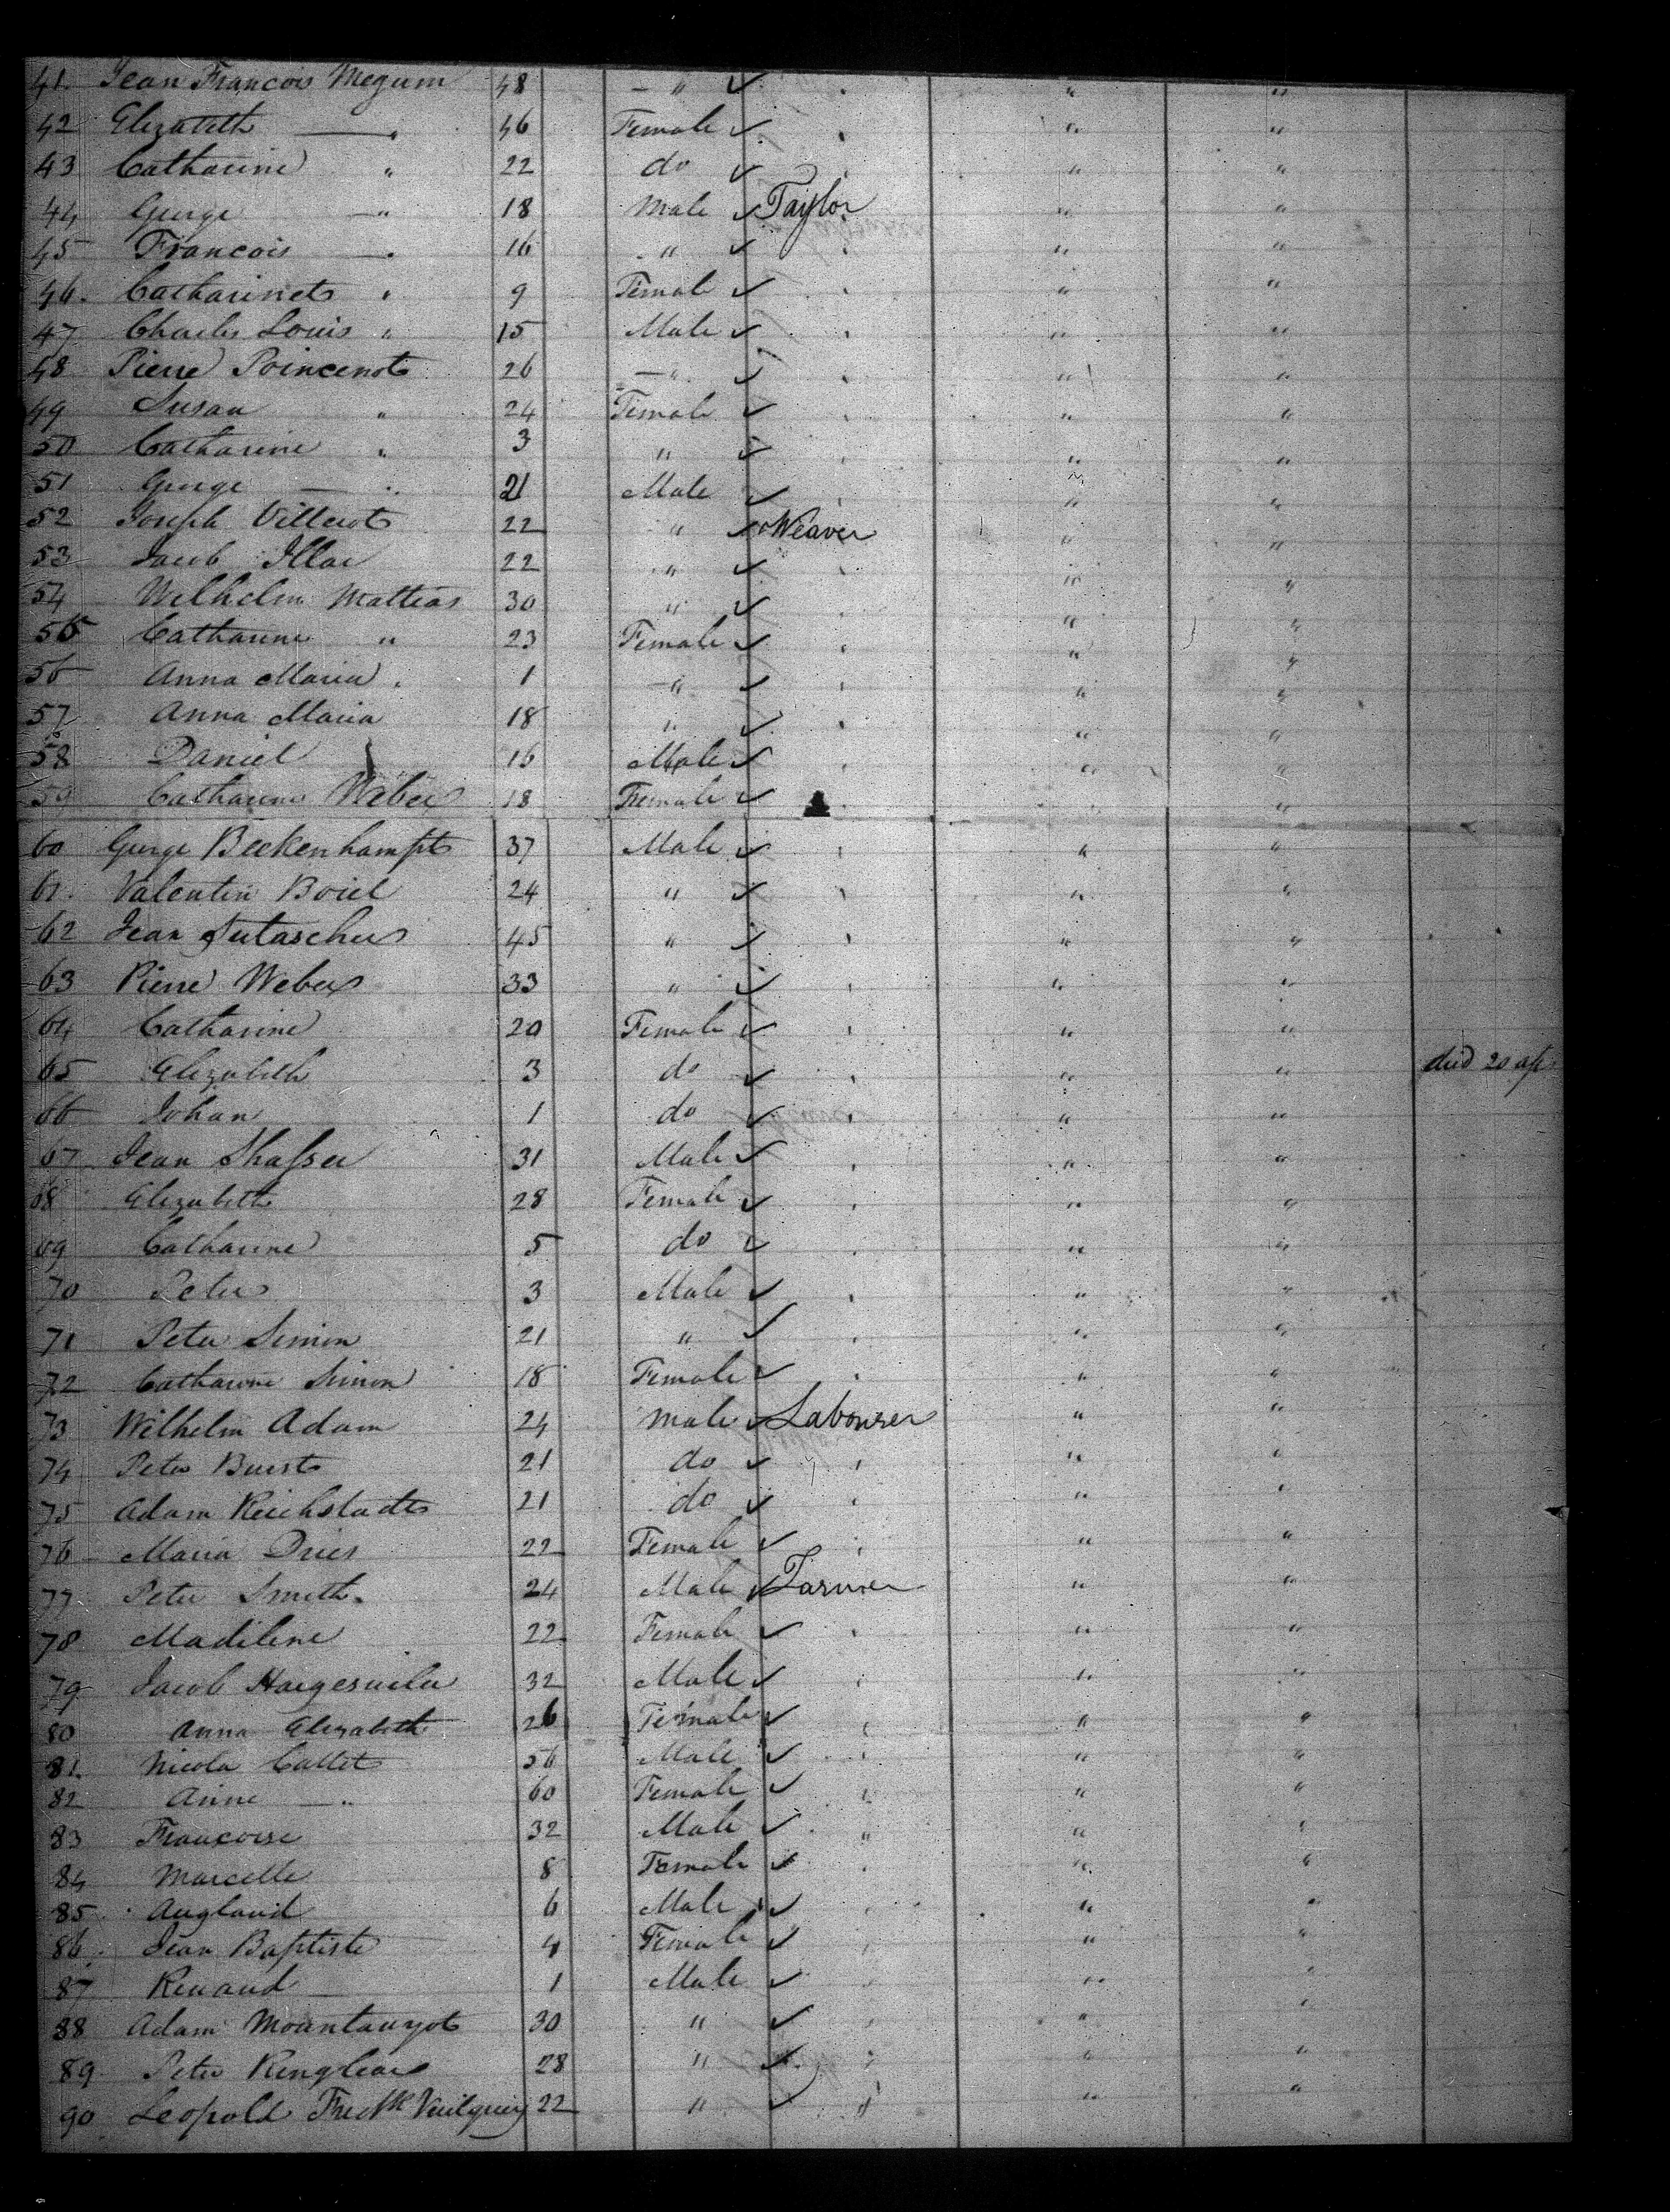 41. Jean Francois Megum 48 — " " "
42 Elizabeth — " 46 Female " "
43 Catharine " 22 do " "
44 George — " 18 Male Taylor " "
45 Francois — " 16 " " "
46. Catharinet " 9 Female " "
47 Charles Louis " 15 Male " "
48 Pierre Poincenot 26 — " " "
49 Susan " 24 Female " "
50 Catharine " 3 " " "
51 George — " 21 Male " "
52 Joseph Villerot 22 " Weaver " "
53 Jacob Illar 22 " " "
54 Wilhelm Mattias 30 " " "
55 Catharine " 23 Female " "
56 Anna Maria " 1 — " " "
57 Anna Maria 18 " " "
58 Daniel 16 Male " "
59 Catharine Weber 18 Female " "
60 George Beckenhampt 37 Male " "
61. Valentin Boiel 24 " " "
62 Jean 45 " " "
63 Pierre Weber 33 " " "
64 Catharine 20 Female " "
65 Elizabeth 3 do " " died 20 ap
66 Johan 1 do " "
67 Jean Shaffer 31 Male " "
68 Elizabeth 28 Female " "
69 Catharine 5 do " "
70 Peter 3 Male " "
71 Peter Simon 21 " " "
72 Catharine Simon 18 Female " "
73 Wilhelm Adam 24 Male Labourer " "
74 Peter Buert 21 do " "
75 Adam Reichstadt 21 do " "
76 Maria Dries 22 Female " "
77 Peter Smith. 24 Male Farmer " "
78 Madiline 22 Female " "
79 Jacob 32 Male " "
80 Anna Elizabeth 26 Female " "
81. Nicola Callet 56 Male " "
82 Anne — " 60 Female " "
83 Francoise 32 Male " " "
84 Marcelle 8 Female " "
85. Augland 6 Male " "
86. Jean Baptiste 4 Female " "
87 Renaud — 1 Male " "
88 Adam Mountauyot 30 " " "
89. Peter 28 " " "
90 Leopold Fredk 22 " " " "